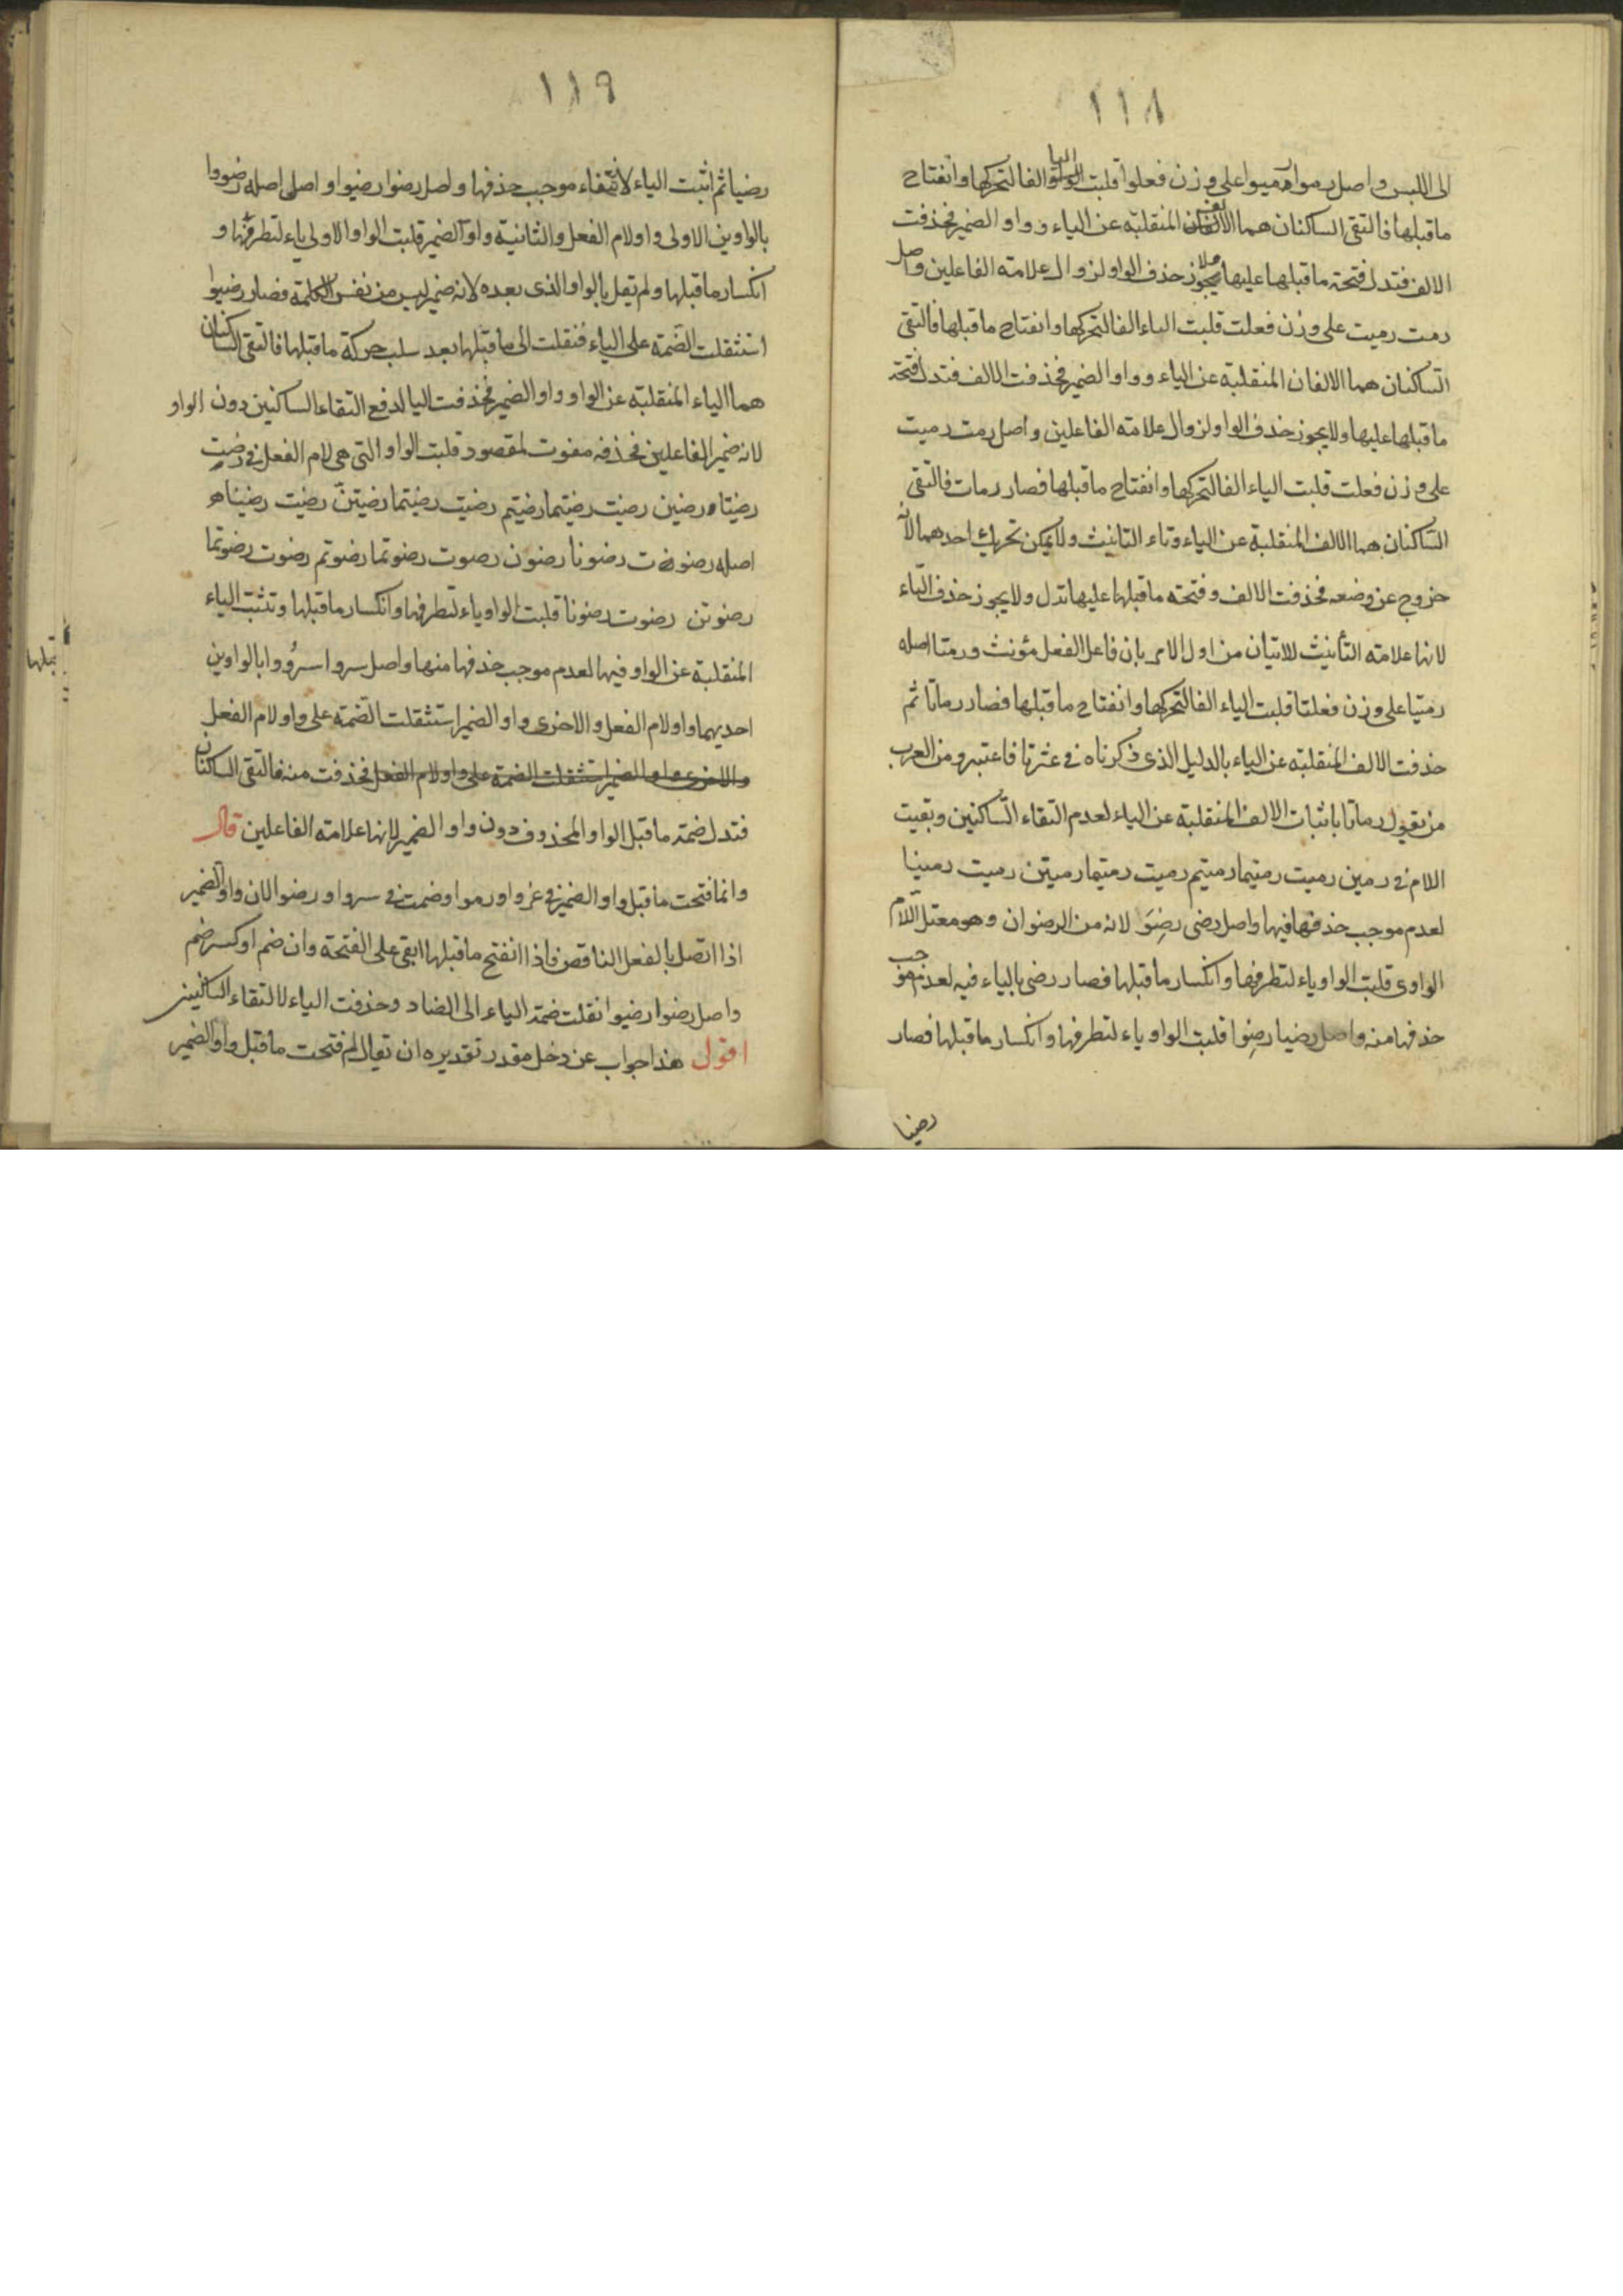 ١١٨
الى اللبس واصل رموا رميوا على وزن فعلوا قلبت الياء الفا لتحركها وانفتاح
ما قبلها فالتقى الساكنان هما الالف المنقلبة عن الياء وواو الضمير فحذفت
الالف فتدل فتحة ما قبلها عليها ولا يجوز حذف الواو لزوال علامة الفاعلين واصل
رمت رميت على وزن فعلت قلبت الياء الفا لتحركها وانفتاح ما قبلها فالتقى
الساكنان هما الالفان المنقلبة عن الياء وواو الضمير فحذفت الالف فتدل فتحة
ما قبلها عليها ولا يجوز حذف الواو لزوال علامة الفاعلين واصل رمت رميت
على وزن فعلت قلبت الياء الفا لتحركها وانفتاح ما قبلها فصار رمات فالتقى
الساكنان هما الالف المنقلبة عن الياء وتاء التانيث ولا يمكن تحريك احدهما لانه
خروج عن وضعه فحذفت الالف وفتحة ما قبلها عليها تدل ولا يجوز حذف التاء
لانها علامة التأنيث للاتيان من اول الامر بان فاعل الفعل مؤنث ورمتا اصله
رميتا على وزن فعلتا قلبت الياء الفا لتحركها وانفتاح ما قبلها فصار رماتا ثم
حذفت الالف المنقلبة عن الياء بالدليل الذى ذكرناه فى غزتا فاعتبر ومن العرب
من يقول رماتا باثبات الالف المنقلبة عن الياء لعدم التقاء الساكنين وبقيت
اللام فى رمين رميت رميتما رميتم رميت رميتما رميتن رميت رمينا
لعدم موجب حذفها فيها واصل رضى رضِوَ لانه من الرضوان وهو معتل اللام
الواوى قلبت الواو ياء لتطرفها وانكسار ما قبلها فصار رضى بالياء فيه لعدم موجب
حذفها منه واصل رضيا رضِوا قلبت الواو ياء لتطرفها وانكسار ما قبلها فصار
رضيا
١١٩
رضيا ثم اثبت الياء لانتفاء موجب حذفها واصل رضوا رضيوا واصل اصله رضووا
بالواوين الاولى واو لام الفعل والثانية واو الضمير قلبت الواو الاولى ياء لتطرفها و
انكسار ما قبلها ولم تعل بالواو الذى بعده لانه ضمير ليس من نفس الكلمة فصار رضيوا
استثقلت الضمة على الياء فنقلت الى ما قبلها بعد سلب حركة ما قبلها فالتقى الساكنان
هما الياء المنقلبة عن الواو وواو الضمير فحذفت اليا لدفع التقاء الساكنين دون الواو
لانه ضمير الفاعلين فحذفه مفوت لمقصود قلبت الواو التى هى لام الفعل فى رضيت
رضيتا ورضين رضيت رضيتما رضيتم رضيت رضيتما رضيتن رضيت رضينا
اصله رضوت رضوتا رضون رضوت رضوتما رضوتم رضوت رضوتما
رضوتن رضوت رضونا قلبت الواو ياء لتطرفها وانكسار ما قبلها وتثبت الياء
المنقلبة عن الواو فيها لعدم موجب حذفها منها واصل سروا سرُووا بالواوين
احديهما واو لام الفعل والاخرى واو الضمير استثقلت الضمة على واو لام الفعل
والاخرى واو الضمير استثقلت الضمة على واو لام الفعل فحذفت منه فالتقى الساكنان
فتدل ضمة ما قبل الواو المحذوف دون واو الضمير لانها علامة الفاعلين قال
وانما فتحت ما قبل واو الضمير فى غزوا ورموا وضمت فى سروا ورضوا لان واو الضمير
اذا اتصل بالفعل الناقص فاذا انفتح ما قبلها ابقى على الفتحة وان ضم او كسر ضم
واصل رضوا رضيوا نقلت ضمة الياء الى الضاد وحذفت الياء لالتقاء الساكنين
اقول هذا جواب عن دخل مقدر تقديره ان تقال لم فتحت ما قبل واو الضمير
قبلها